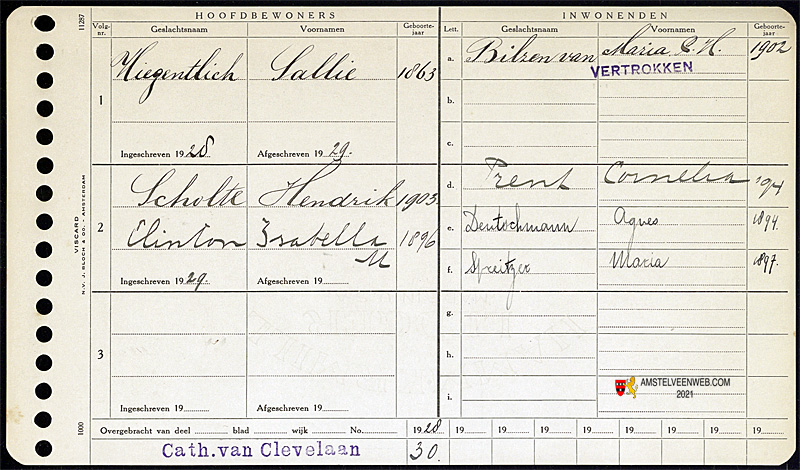 HOOFDBEWONERS
INWONENDEN
11287
Volg-nr.
Geslachtsnaam
Voornamen
Geboorte-jaar
Lett.
Geslachtsnaam
Voornamen
Geboorte-jaar
1
Wiegentlich Sallie 1863
Ingeschreven 1928
Afgeschreven 1929.
a. Bilzen van Maria C. H. 1902
VERTROKKEN
b.
c.
2
Scholte Hendrik 1903.
Clinton Isabella 1896
M
Ingeschreven 1929.
Afgeschreven 19
d. Prent Cornelia
e. Deutschmann Agnes 1894.
f. Spreitzer Maria 1897.
3
Ingeschreven 19
Afgeschreven 19
g.
h.
i.
AMSTELVEENWEB.COM
2021
VISCARD
N.V. J. BLOCH & CO. AMSTERDAM
1000
Overgebracht van deel blad wijk No.
1928 19 19 19 19 19 19 19 19
Cath.van Clevelaan
30.